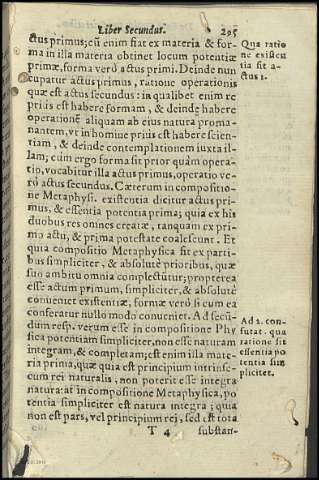 Liber Secundus. 295
ctus primus; cũ enim fiat ex materia & for-
ma in illa materia obtinet locum potentiæ
primæ, forma verò actus primi. Deinde nun
cupatur actus primus, ratione operationis
quæ est actus secundus: in qualibet enim re
prius est habere formam, & deinde habere
operationẽ aliquam ab eius natura proma-
nantem, vt in homine prius est habere scien-
tiam, & deinde contemplationem iuxta il-
lam; cum ergo forma sit prior quàm opera-
tio, vocabitur illa actus primus, operatio ve-
rò actus secundus. Cæterum in compositio-
ne Metaphysi. existentia dicitur actus pri-
mus, & essentia potentia prima; quia ex his
duobus res omnes creatæ, tanquam ex pri-
mo actu, & prima potestate coalescunt. Et
quia compositio Metaphysica sit ex parti-
bus simpliciter, & absolutè prioribus, quæ
suo ambitu omnia complectũtur; propterea
esse actum primum, simpliciter, & absolutè
convenit existentiæ, formæ verò si cum ea
conferatur nullo modo convenit. Ad secũ-
dum resp. verum esse in compositione Phy
sica potentiam simpliciter, non esse naturam
integram, & completam; est enim illa mate-
ria prima, quæ quia est principium intrinse-
cum rei naturalis, non poterit esse integra
natura: at in compositione Metaphysica, po
tentia simpliciter est natura integra; quia
non est pars, vel principium rei, sed est tota
T 4 substan-
Qua ratio
ne existen
tia sit a-
ctus 1.
Ad 2. con-
futat. qua
ratione sit
essentia po
tentia sim
plicitet.